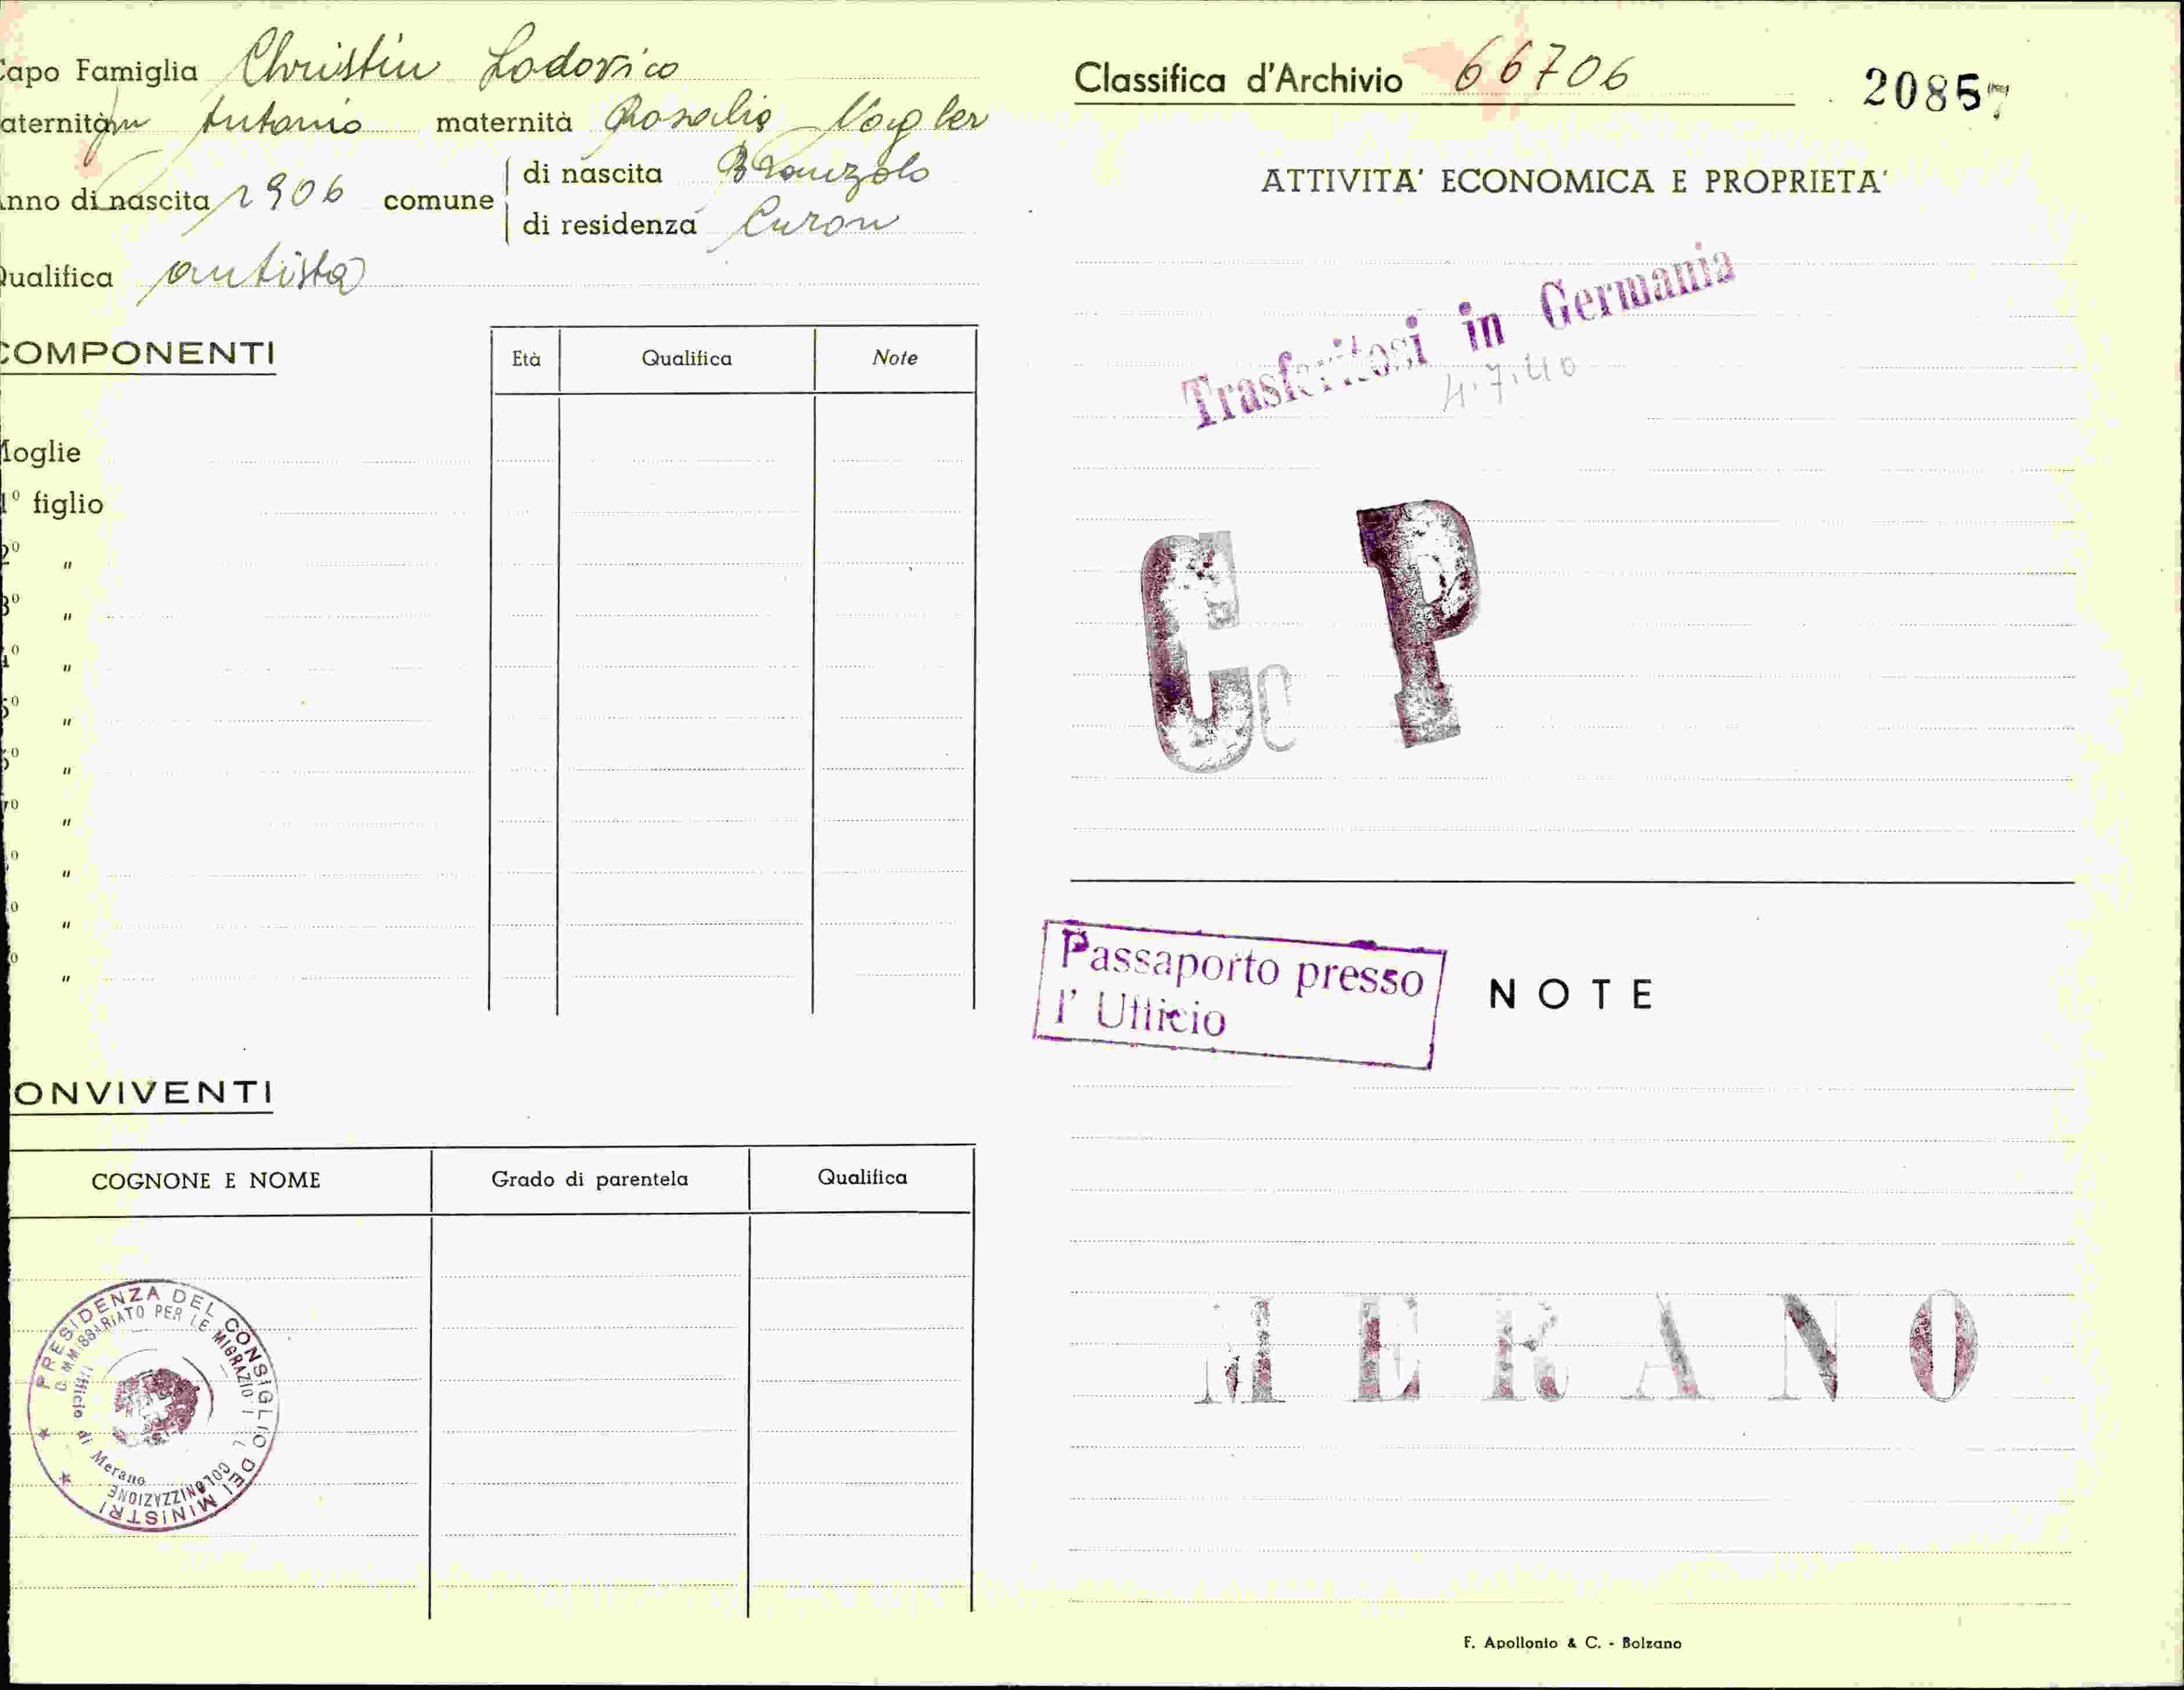 apo Famiglia Christin Lodovico
aternità fu Antonio maternità Rosalia
nno di nascita 1906 comune
di nascita Bronzolo
di residenza Curon
ualifica autista
COMPONENTI
Età Qualifica Note
Moglie
1º figlio
2º "
3º "
4º "
5º "
6º "
7º "
º "
º "
º "
ONVIVENTI
COGNONE E NOME Grado di parentela Qualifica
PRESIDENZA DEL CONSIGLIO DEI MINISTRI
COMMISSARIATO PER LE MIGRAZIONI E LA COLONIZZAZIONE
Ufficio di Merano
Classifica d'Archivio 66706
20857
ATTIVITA' ECONOMICA E PROPRIETA'
Trasferitosi in Germania
4.7.40
C P
Passaporto presso
l' Ufficio
NOTE
MERANO
F. Apollonio & C. - Bolzano